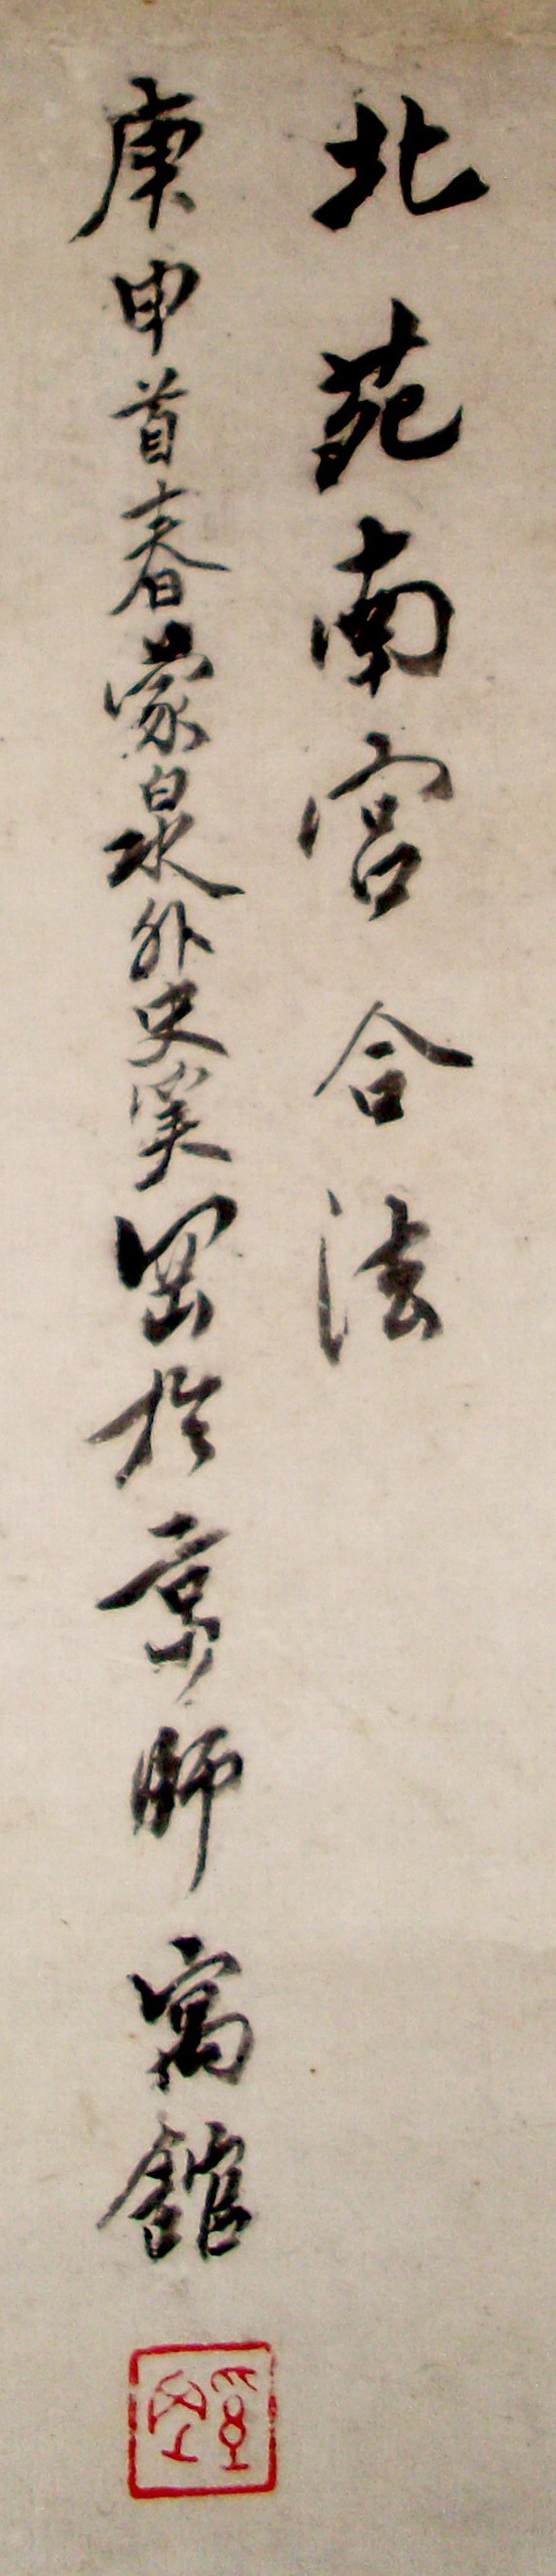 北苑南宮合法
庚申首春蒙泉外史奚岡於京師寓館